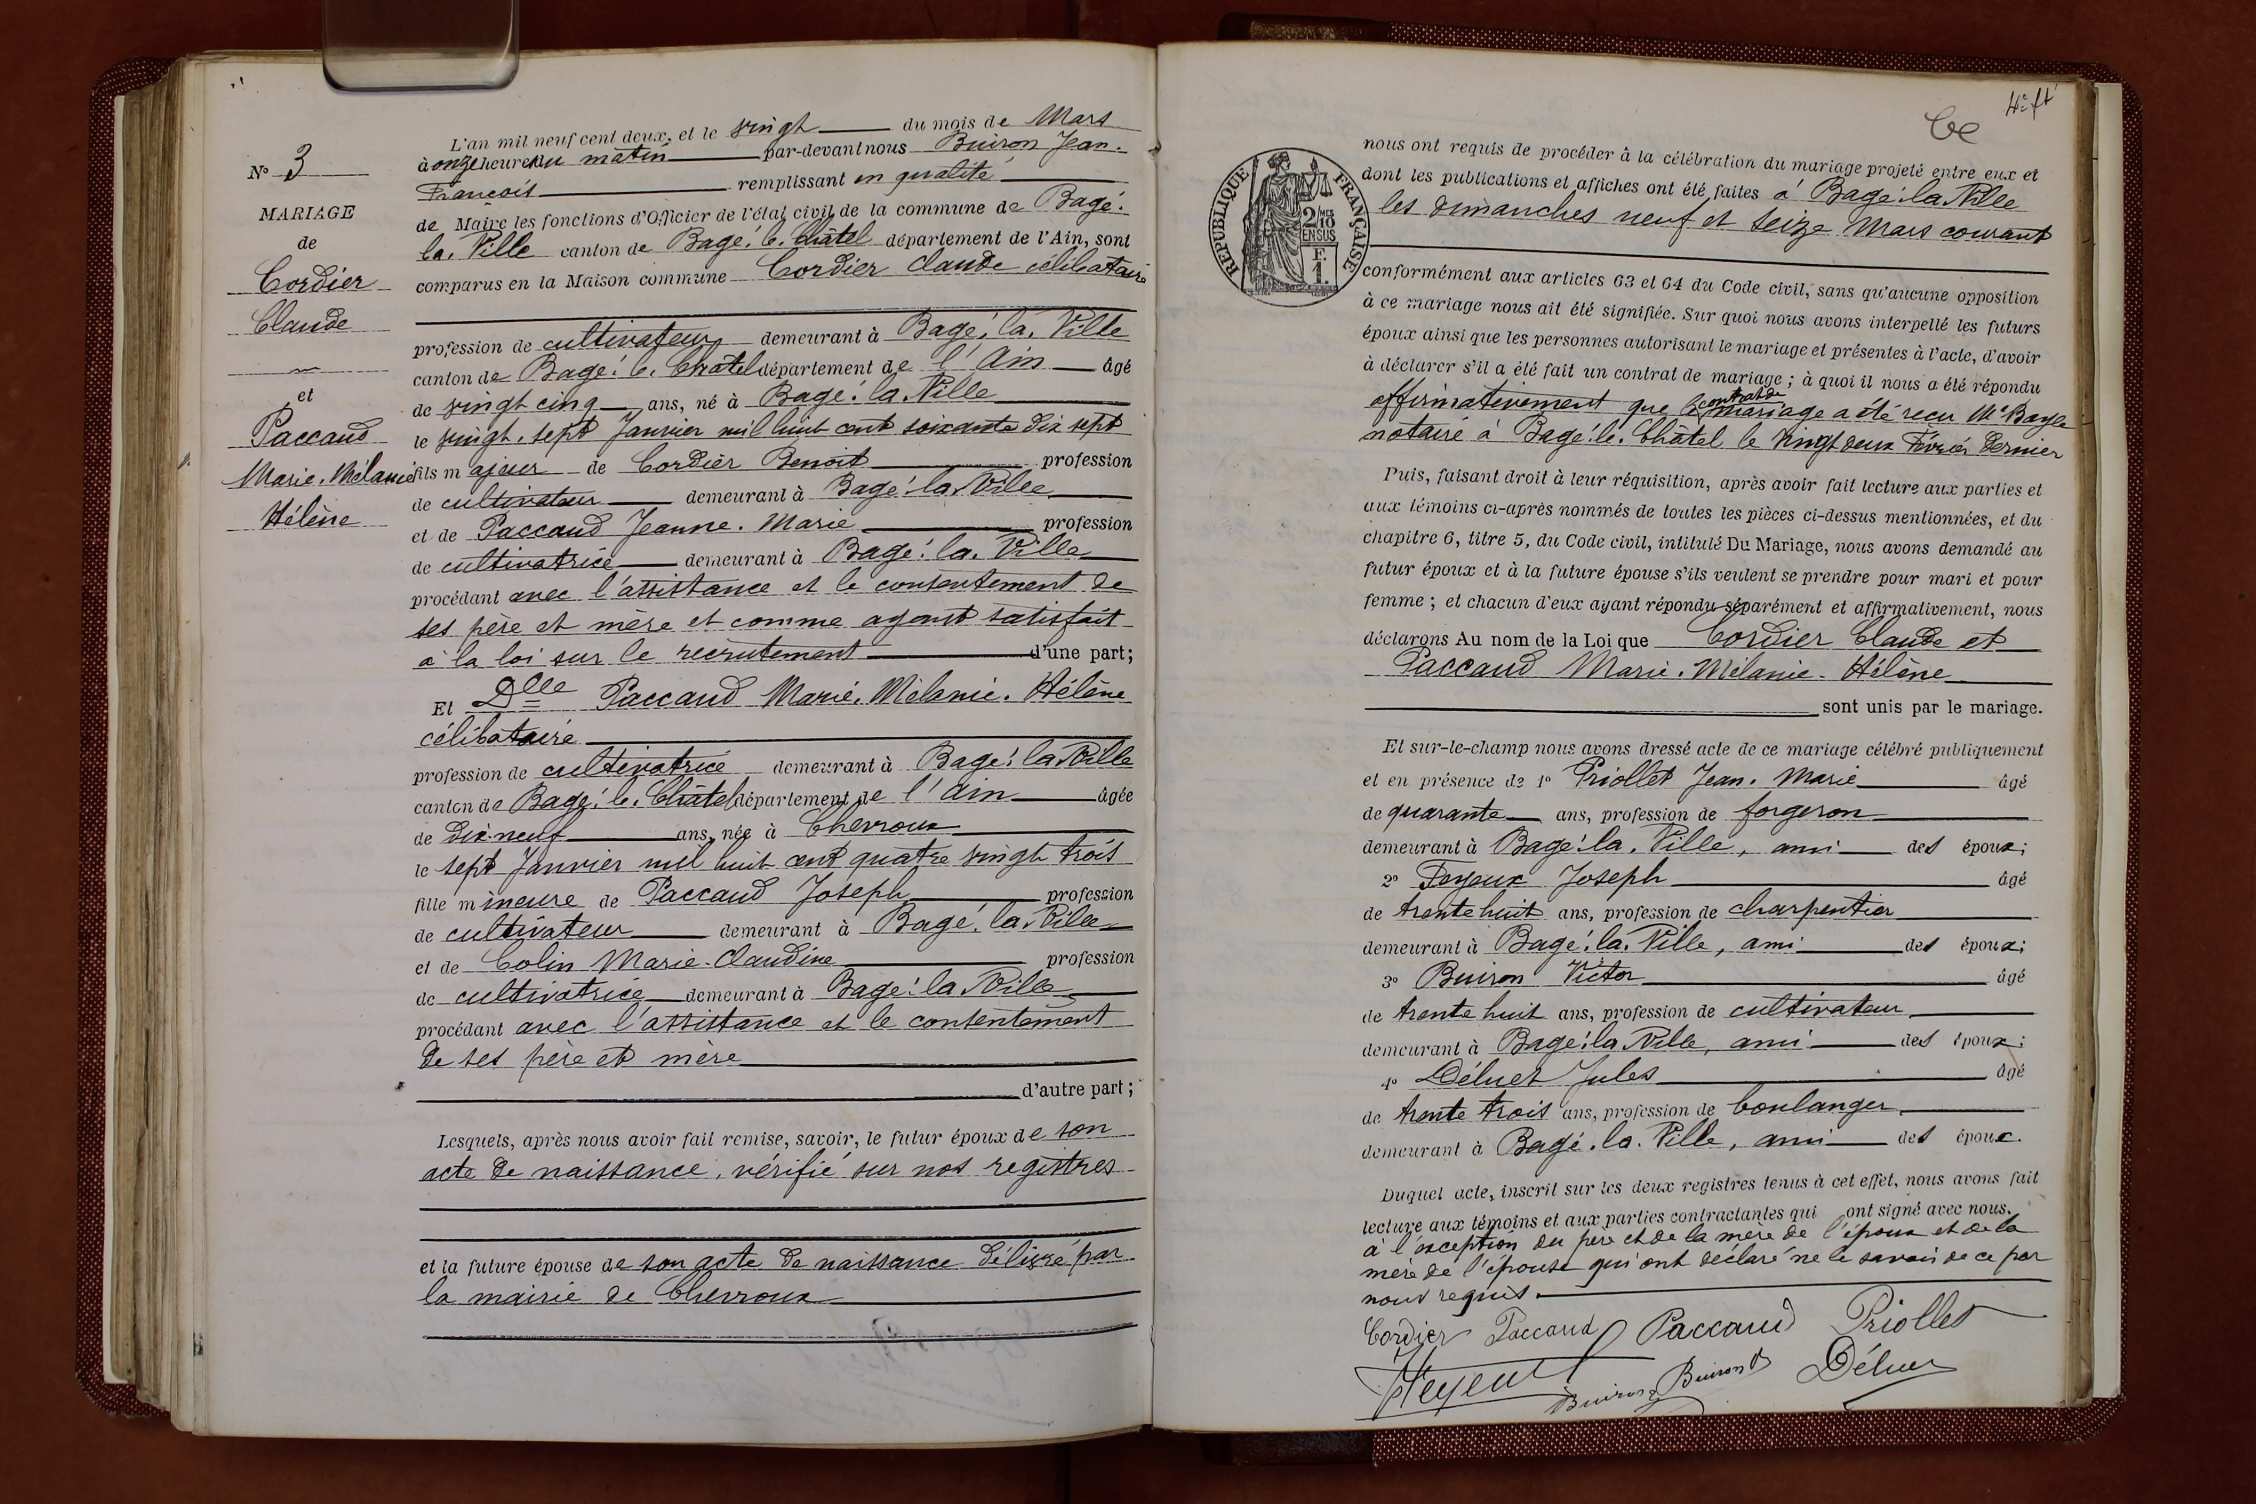 N° 3
MARIAGE
de
Cordier
Claude
et
Paccaud
Marie. Mélanie
Hélène
L'an mil neuf cent deux, et le vingt du mois de Mars
à onze heures du matin par-devant nous Buiron Jean.
François remplissant en qualité
de Maire les fonctions d'Officier de l'état civil de la commune de Bagé.
la. Ville canton de Bagé. le. Châtel département de l'Ain, sont
comparus en la Maison commune Cordier Claude célibataire
profession de cultivateur demeurant à Bagé. la. Ville
canton de Bagé. le. Châtel département de l'Ain âgé
de vingt cinq ans, né à Bagé. la Ville
le vingt. sept Janvier mil huit cent soixante dix sept
fils majeur de Cordier Benoit profession
de cultivateur demeurant à Bagé. la. Ville
et de Paccaud Jeanne. Marie profession
de cultivatrice demeurant à Bagé. la. Ville
procédant avec l'assistance et le consentement de
ses père et mère et comme ayant satisfait
à la loi sur le recrutement d'une part;
Et Dlle Paccaud Marie. Mélanie. Hélène
célibataire
profession de cultivatrice demeurant à Bagé. la Ville
canton de Bagé. le. Châtel département de l'Ain âgée
de dix-neuf ans, née à Chevroux
le sept Janvier mil huit cent quatre vingt trois
fille mineure de Paccaud Joseph profession
de cultivateur demeurant à Bagé. la Ville
et de Colin Marie-Claudine profession
de cultivatrice demeurant à Bagé. la Ville
procédant avec l'assistance et le consentement
de ses père et mère
d'autre part;
Lesquels, après nous avoir fait remise, savoir, le futur époux de son
acte de naissance, vérifié sur nos registres
et la future épouse de son acte de naissance délivré par
la mairie de Chevroux
RÉPUBLIQUE FRANÇAISE
2/10 MES
EN SUS
F.
1.
nous ont requis de procéder à la célébration du mariage projeté entre eux et
dont les publications et affiches ont été faites à Bagé. la Ville
les dimanches neuf et seize Mars courant
conformément aux articles 63 et 64 du Code civil, sans qu'aucune opposition
à ce mariage nous ait été signifiée. Sur quoi nous avons interpellé les futurs
époux ainsi que les personnes autorisant le mariage et présentes à l'acte, d'avoir
à déclarer s'il a été fait un contrat de mariage; à quoi il nous a été répondu
affirmativement que le contrat de mariage a été reçu Me
notaire à Bagé. le. Châtel le vingt deux Février dernier
Puis, faisant droit à leur réquisition, après avoir fait lecture aux parties et
aux témoins ci-après nommés de toutes les pièces ci-dessus mentionnées, et du
chapitre 6, titre 5, du Code civil, intitulé Du Mariage, nous avons demandé au
futur époux et à la future épouse s'ils veulent se prendre pour mari et pour
femme; et chacun d'eux ayant répondu séparément et affirmativement, nous
déclarons Au nom de la Loi que Cordier Claude et
Paccaud Marie. Mélanie. Hélène
sont unis par le mariage.
Et sur-le-champ nous avons dressé acte de ce mariage célébré publiquement
et en présence de 1° Priollet Jean. Marie âgé
de quarante ans, profession de forgeron
demeurant à Bagé. la. Ville, ami des époux;
2° Feyeux Joseph âgé
de trente huit ans, profession de charpentier
demeurant à Bagé. la. Ville, ami des époux;
3° Buiron Victor âgé
de trente huit ans, profession de cultivateur
demeurant à Bagé. la Ville, ami des époux;
4° Déluet Jules âgé
de trente trois ans, profession de boulanger
demeurant à Bagé. la. Ville, ami des époux.
Duquel acte, inscrit sur les deux registres tenus à cet effet, nous avons fait
lecture aux témoins et aux parties contractantes qui ont signé avec nous.
à l'exception du père et de la mère de l'époux et de la
mère de l'épouse qui ont déclaré ne le savoir de ce par
nous requis.
Cordier Paccaud Paccaud Priollet
Feyeux Buiron Buiron Déluet